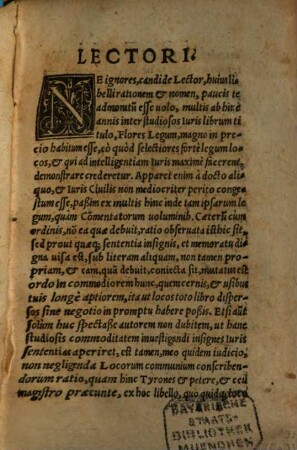 LECTORI.
NE ignores, candide Lector, huius li-
belli rationem & nomen, paucis te
admonitũ esse uolo, multis ab hinc
annis inter studiosos Iuris librum ti-
tulo, Flores Legum, magno in pre-
cio habitum esse, eò quòd selectiores fortè legum lo-
cos, & qui ad intelligentiam Iuris maximè facerent,
demonstrare crederetur. Apparet enim à docto ali-
quo, & Iuris Ciuilis non mediocriter perito conge-
stum esse, paßim ex multis hinc inde tam ipsarum le-
gum, quàm Cõmentatorum uoluminib. Cæterũ cùm
ordinis, nõ ea quæ debuit, ratio obseruata isthic sit,
sed prout quæq; sententia insignis, et memoratu di-
gna uisa est, sub literam aliquam, non tamen pro-
priam, & eam, quã debuit, coniecta sit, mutatus est
ordo in commodiorem hunc, quem cernis, & usibus
tuis longè aptiorem, ita ut locos toto libro disper-
sos sine negotio in promptu habere poßis. Et si aũt
solùm huc spectasse autorem non dubitem, ut hanc
studiosis commoditatem inuestigandi insignes Iuris
sententias aperiret, est tamen, meo quidem iudicio,
non negligenda Locorum communium conscriben-
dorum ratio, quam hinc Tyrones & petere, & ceu
magistro præeunte, ex hoc libello, quo quidq; loco
BAYERISCHE
STAATS-
BIBLIOTHEK
MUENCHEN